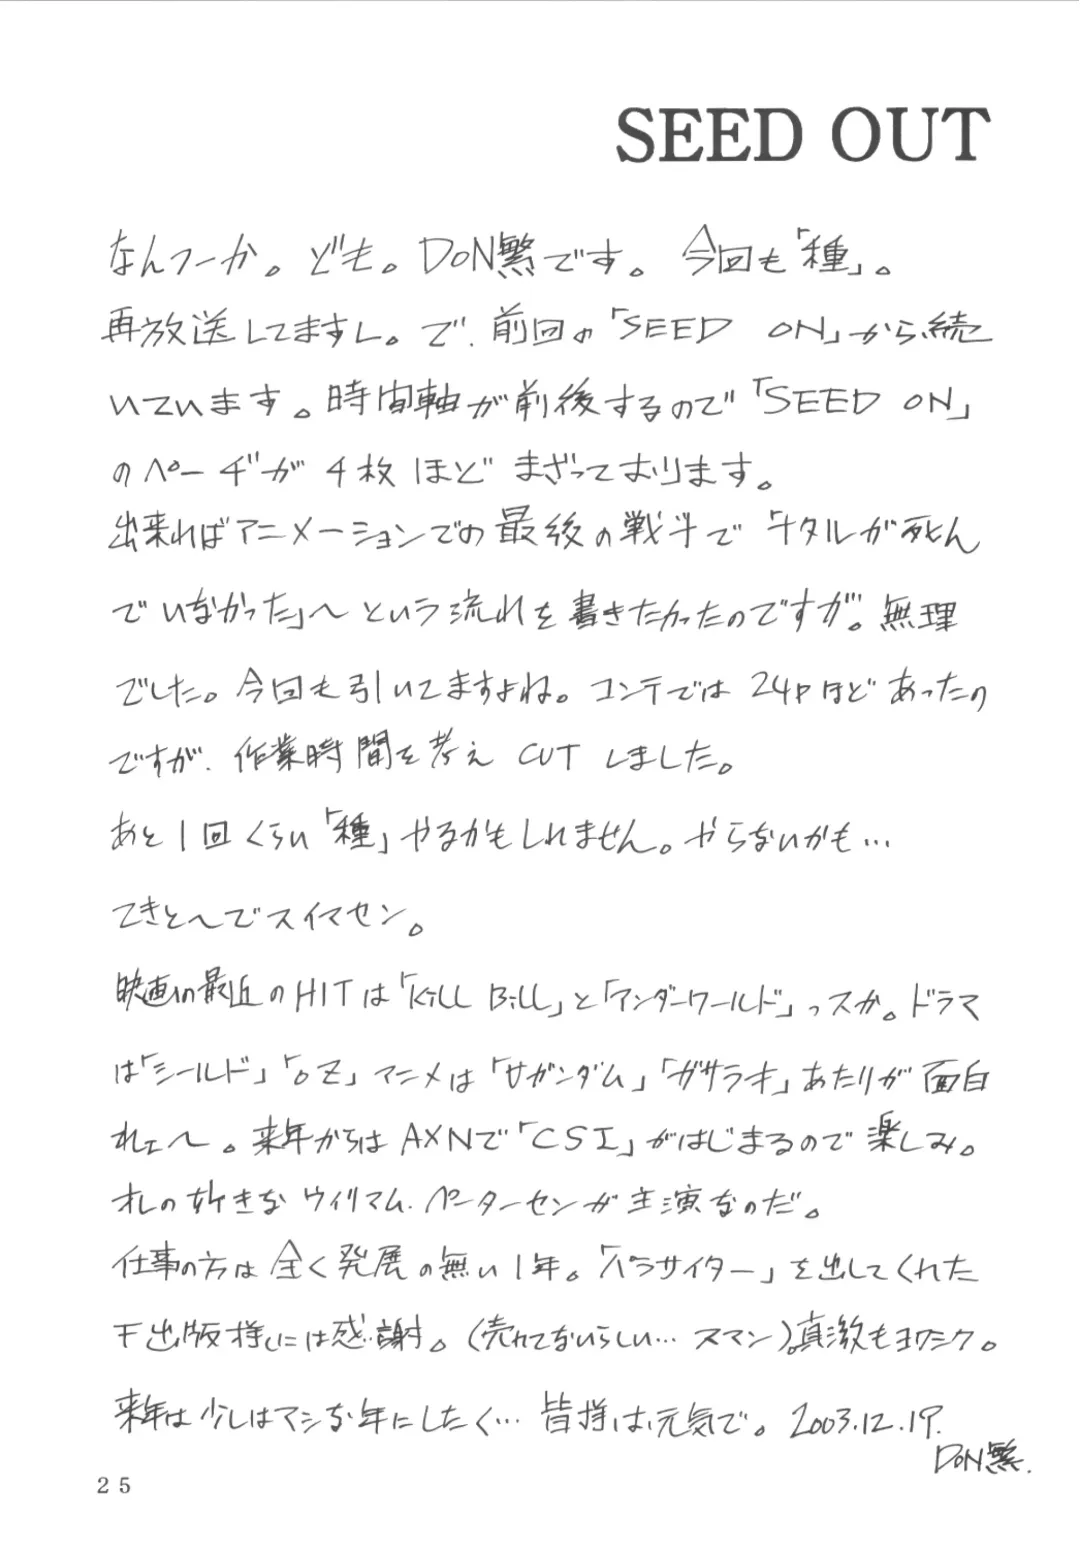 SEED OUT
なんつーか。ども。DON繁です。今回も「種」。
再放送してますし。で、前回の「SEED ON」から続
いています。時間軸が前後するので「SEED ON」
のページが4枚ほどまざっております。
出来ればアニメーションでの最後の戦斗で「キタルが死ん
でいなかった」〜という流れを書きたかったのですが。無理
でした。今回も引いてますよね。コンテでは24pほどあったの
ですが、作業時間を考えCUTしました。
あと1回くらい「種」やるかもしれません。やらないかも…
てきと〜でスイマセン。
映画の最近のHITは「Kill Bill」と「アンダーワールド」っスか。ドラマ
は「シールド」「OZ」アニメは「サガンダム」「ガサラキ」あたりが面白
れェ〜。来年からはAXNで「CSI」がはじまるので楽しみ。
オレの好きなウイリアム・ペーターセンが主演なのだ。
仕事の方は全く発展の無い1年。「パラサイター」を出してくれた
出版様には感謝。(売れてないらしい…スマン)。真激もヨロシク。
来年は少しはマシな年にしたく…皆様は元気で。2003.12.19.
DON繁.
25